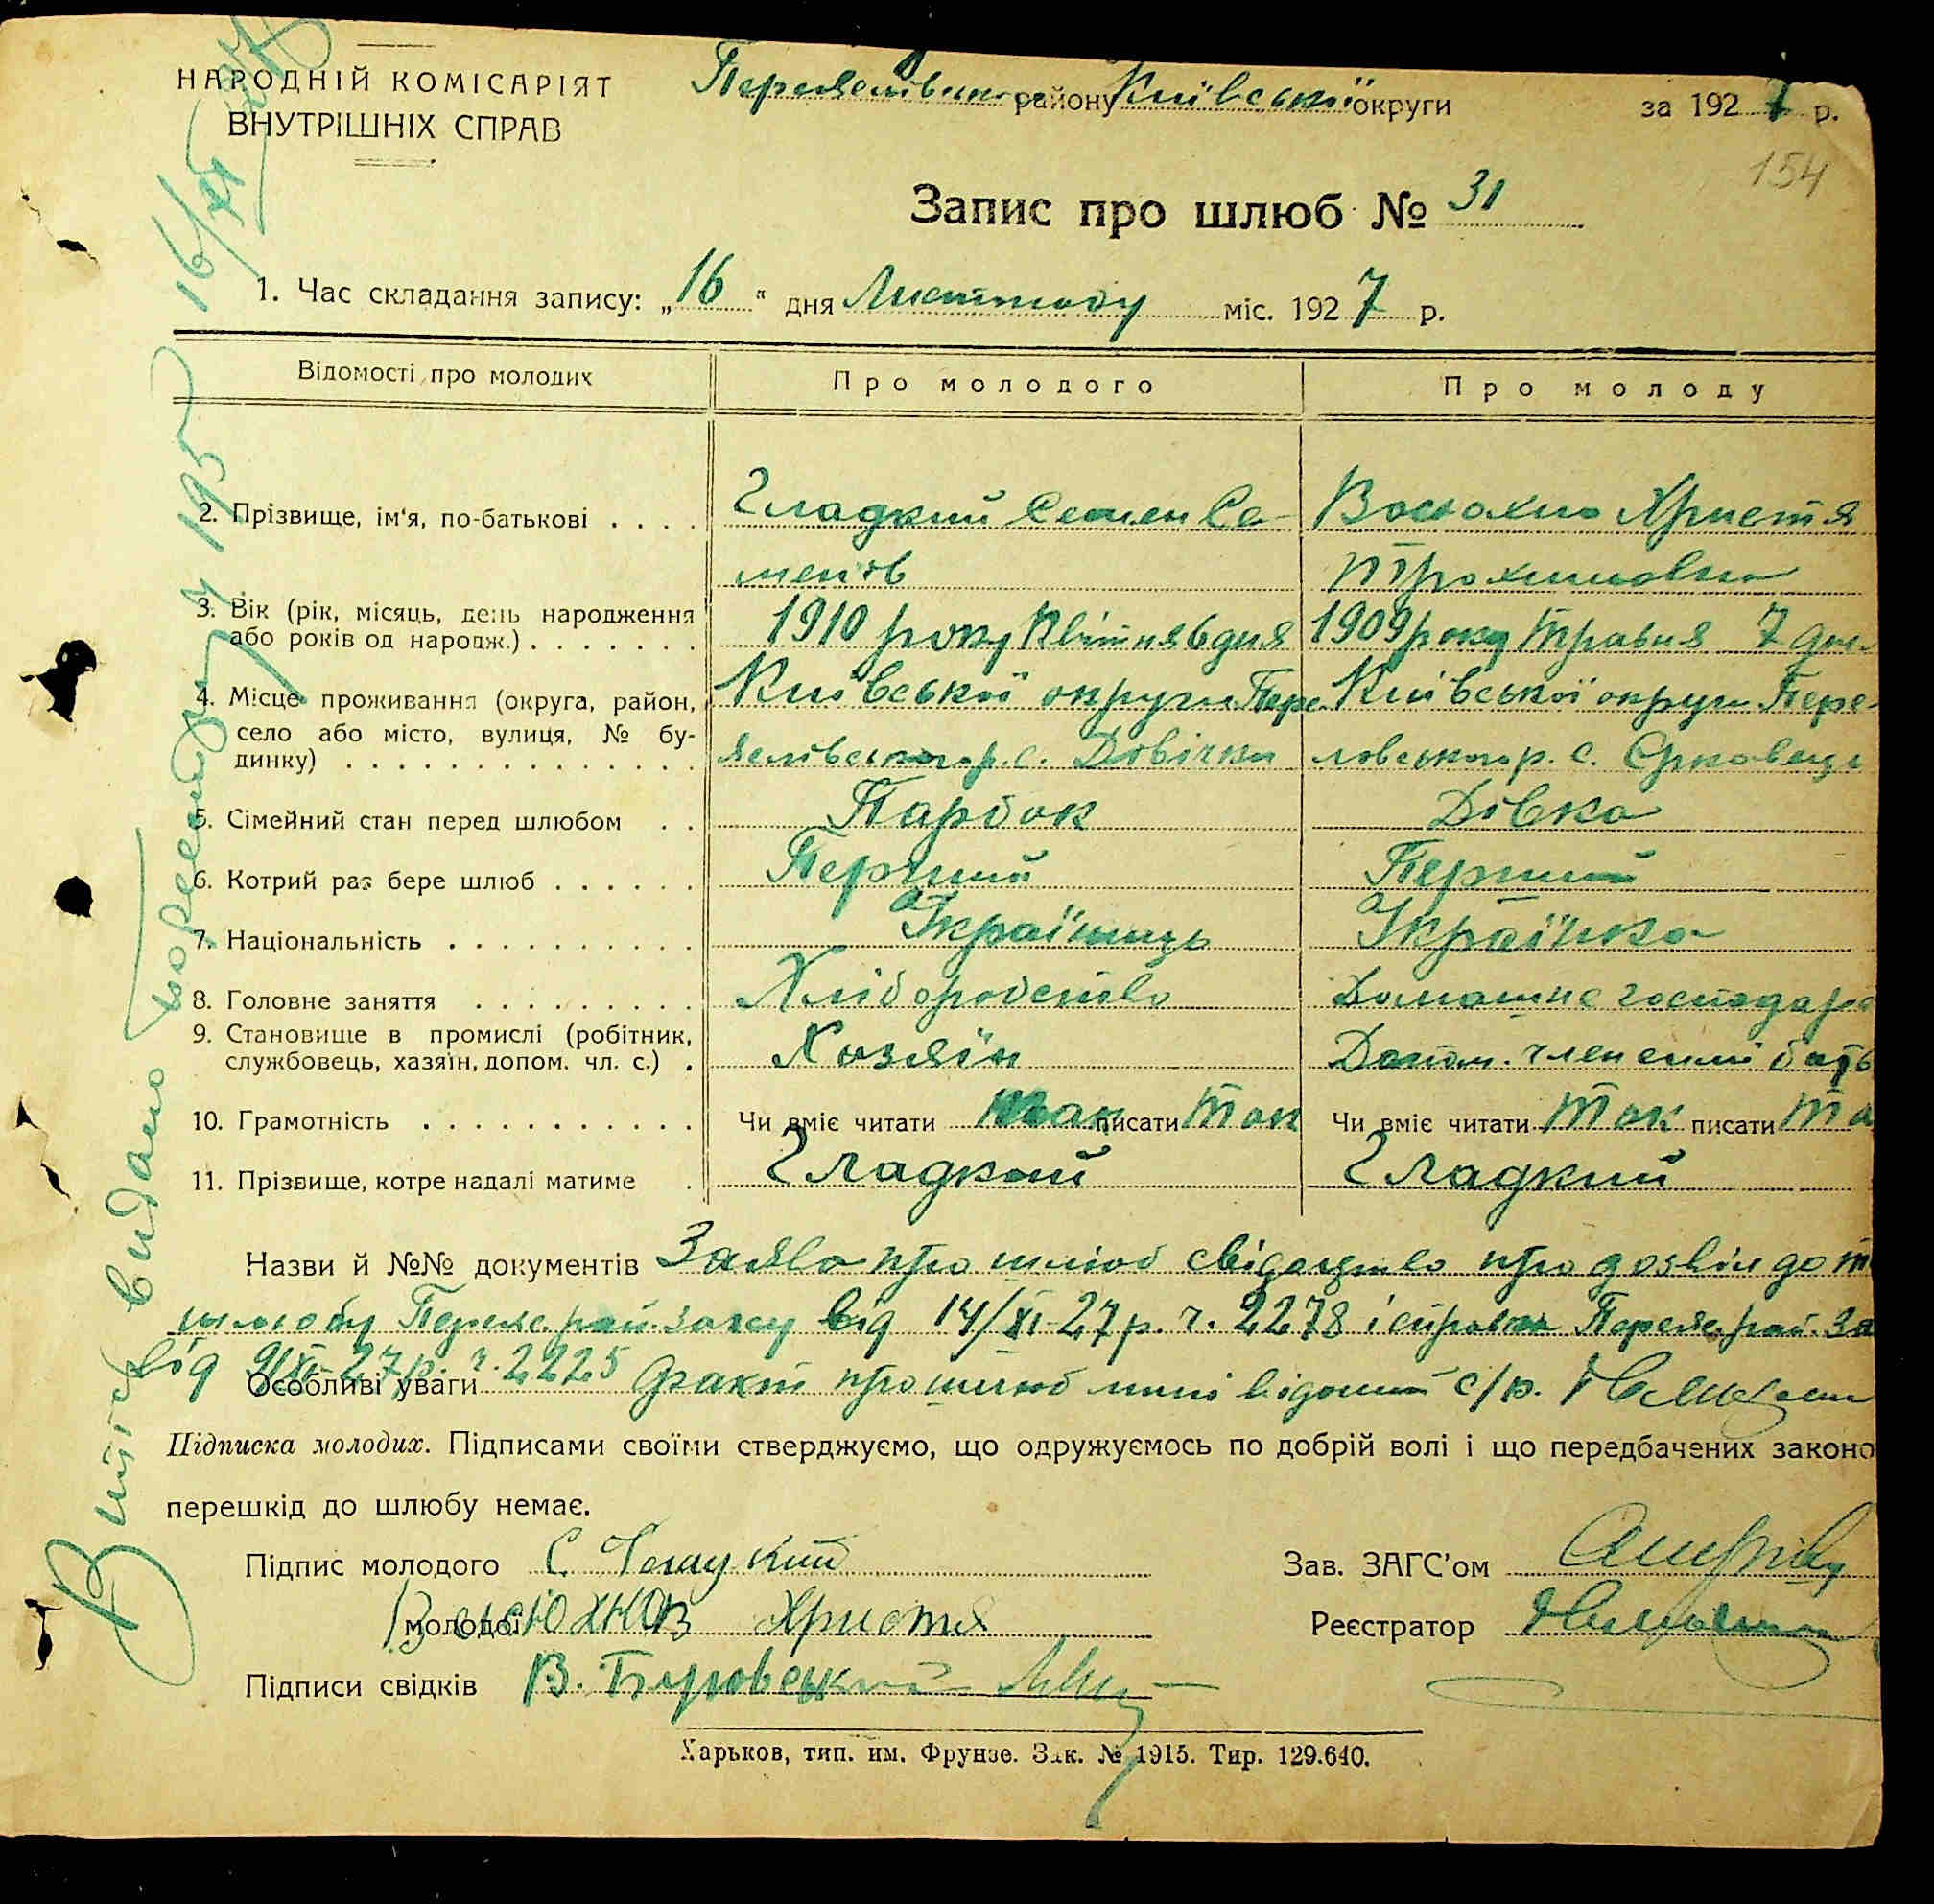 НАРОДНІЙ КОМІСАРІЯТ
ВНУТРІШНІХ СПРАВ
району Київської округи за 1927 р.
154
Запис про шлюб № 31
1. Час складання запису: „16“ дня Листопаду міс. 1927 р.
Відомості про молодих Про молодого Про молоду
2. Прізвище, ім'я, по-батькові . . . . Гладкий Семен Се- Христя
менів Трохимовна
3. Вік (рік, місяць, день народження
або років од народж.) . . . . . . . 1910 року Квітня 6 дня 1909 року травня 7 дня
4. Місце проживання (округа, район, Київської округи Пере Київської округи Пере-
село або місто, вулиця, № бу- яслівського р. с. Дівічки р. с. Єрковець
динку) . . . . . . . . . . . . . .
5. Сімейний стан перед шлюбом . . Парбок Дівка
6. Котрий раз бере шлюб . . . . . . Перший Перший
7. Національність . . . . . . . . . . Українець Українка
8. Головне заняття . . . . . . . . . Хліборобство Домашнє господарс
9. Становище в промислі (робітник,
службовець, хазяїн, допом. чл. с.) . Хозяїн Допом. член сімї
10. Грамотність . . . . . . . . . . . . Чи вміє читати писати Так Чи вміє читати Так писати Та
11. Прізвище, котре надалі матиме . Гладкий Гладкий
Назви й №№ документів Заява про шлюб свідоцтво про дозвіл до
шлюбу Переяс. рай. загсу від 14/XI-27 р. ч. 2278 і справка Переяс. рай. За
від 9/XI-27 р. ч. 2225
Особливі уваги Факт про шлюб мині відомий с/в.
Підписка молодих. Підписами своїми стверджуємо, що одружуємось по добрій волі і що передбачених законо
перешкід до шлюбу немає.
Підпис молодого С. Гладкий Зав. ЗАГС'ом
молодої Христя Реєстратор
Підписи свідків В.
Харьков, тип. им. Фрунзе. Зак. № 1915. Тир. 129.640.
Витяг видано
16/XI